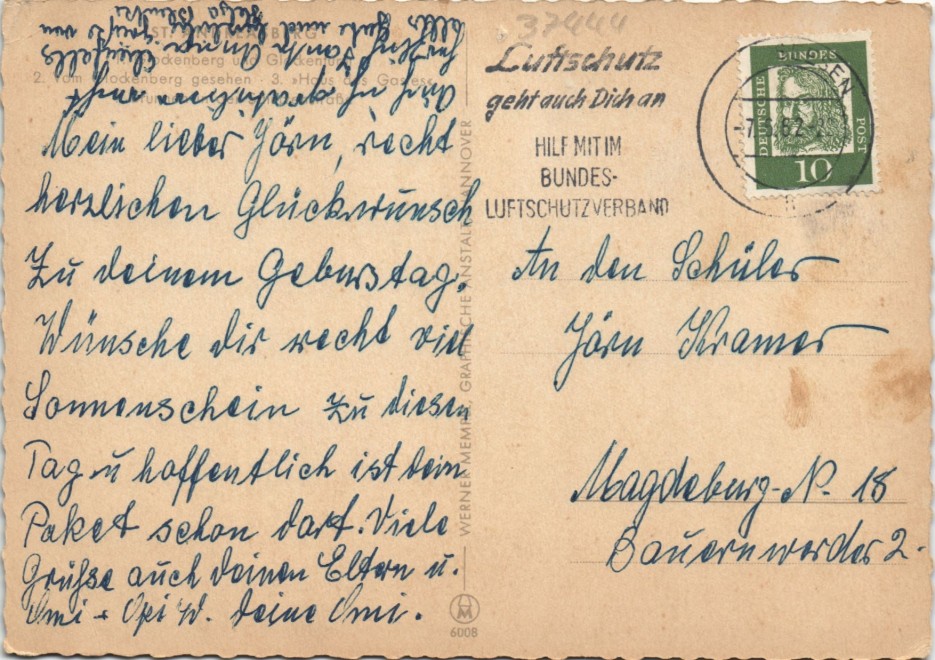 ST. ANDREASBERG
2. vom Glockenberg gesehen · 3. »Haus des Gastes«
Mein lieber Jörn, recht
herzlichen Glückwunsch
Zu deinem Geburstag.
Wünsche dir recht viel
Sonnenschein zu diesen
Tag u hoffentlich ist dein
Paket schon dort. Viele
Grühse auch deinen Eltern u.
Omi + Opi W. deine Omi.
alles Gute und
WERNER MEMPEL, GRAPHISCHE ANSTALT HANNOVER
6008
37444
Luftschutz
geht auch Dich an
HILF MIT IM
BUNDES-
LUFTSCHUTZVERBAND
DEUTSCHE BUNDES POST
10
An den Schüler
Jörn Kramer
Magdeburg-N. 18
Bauernwerder 2.